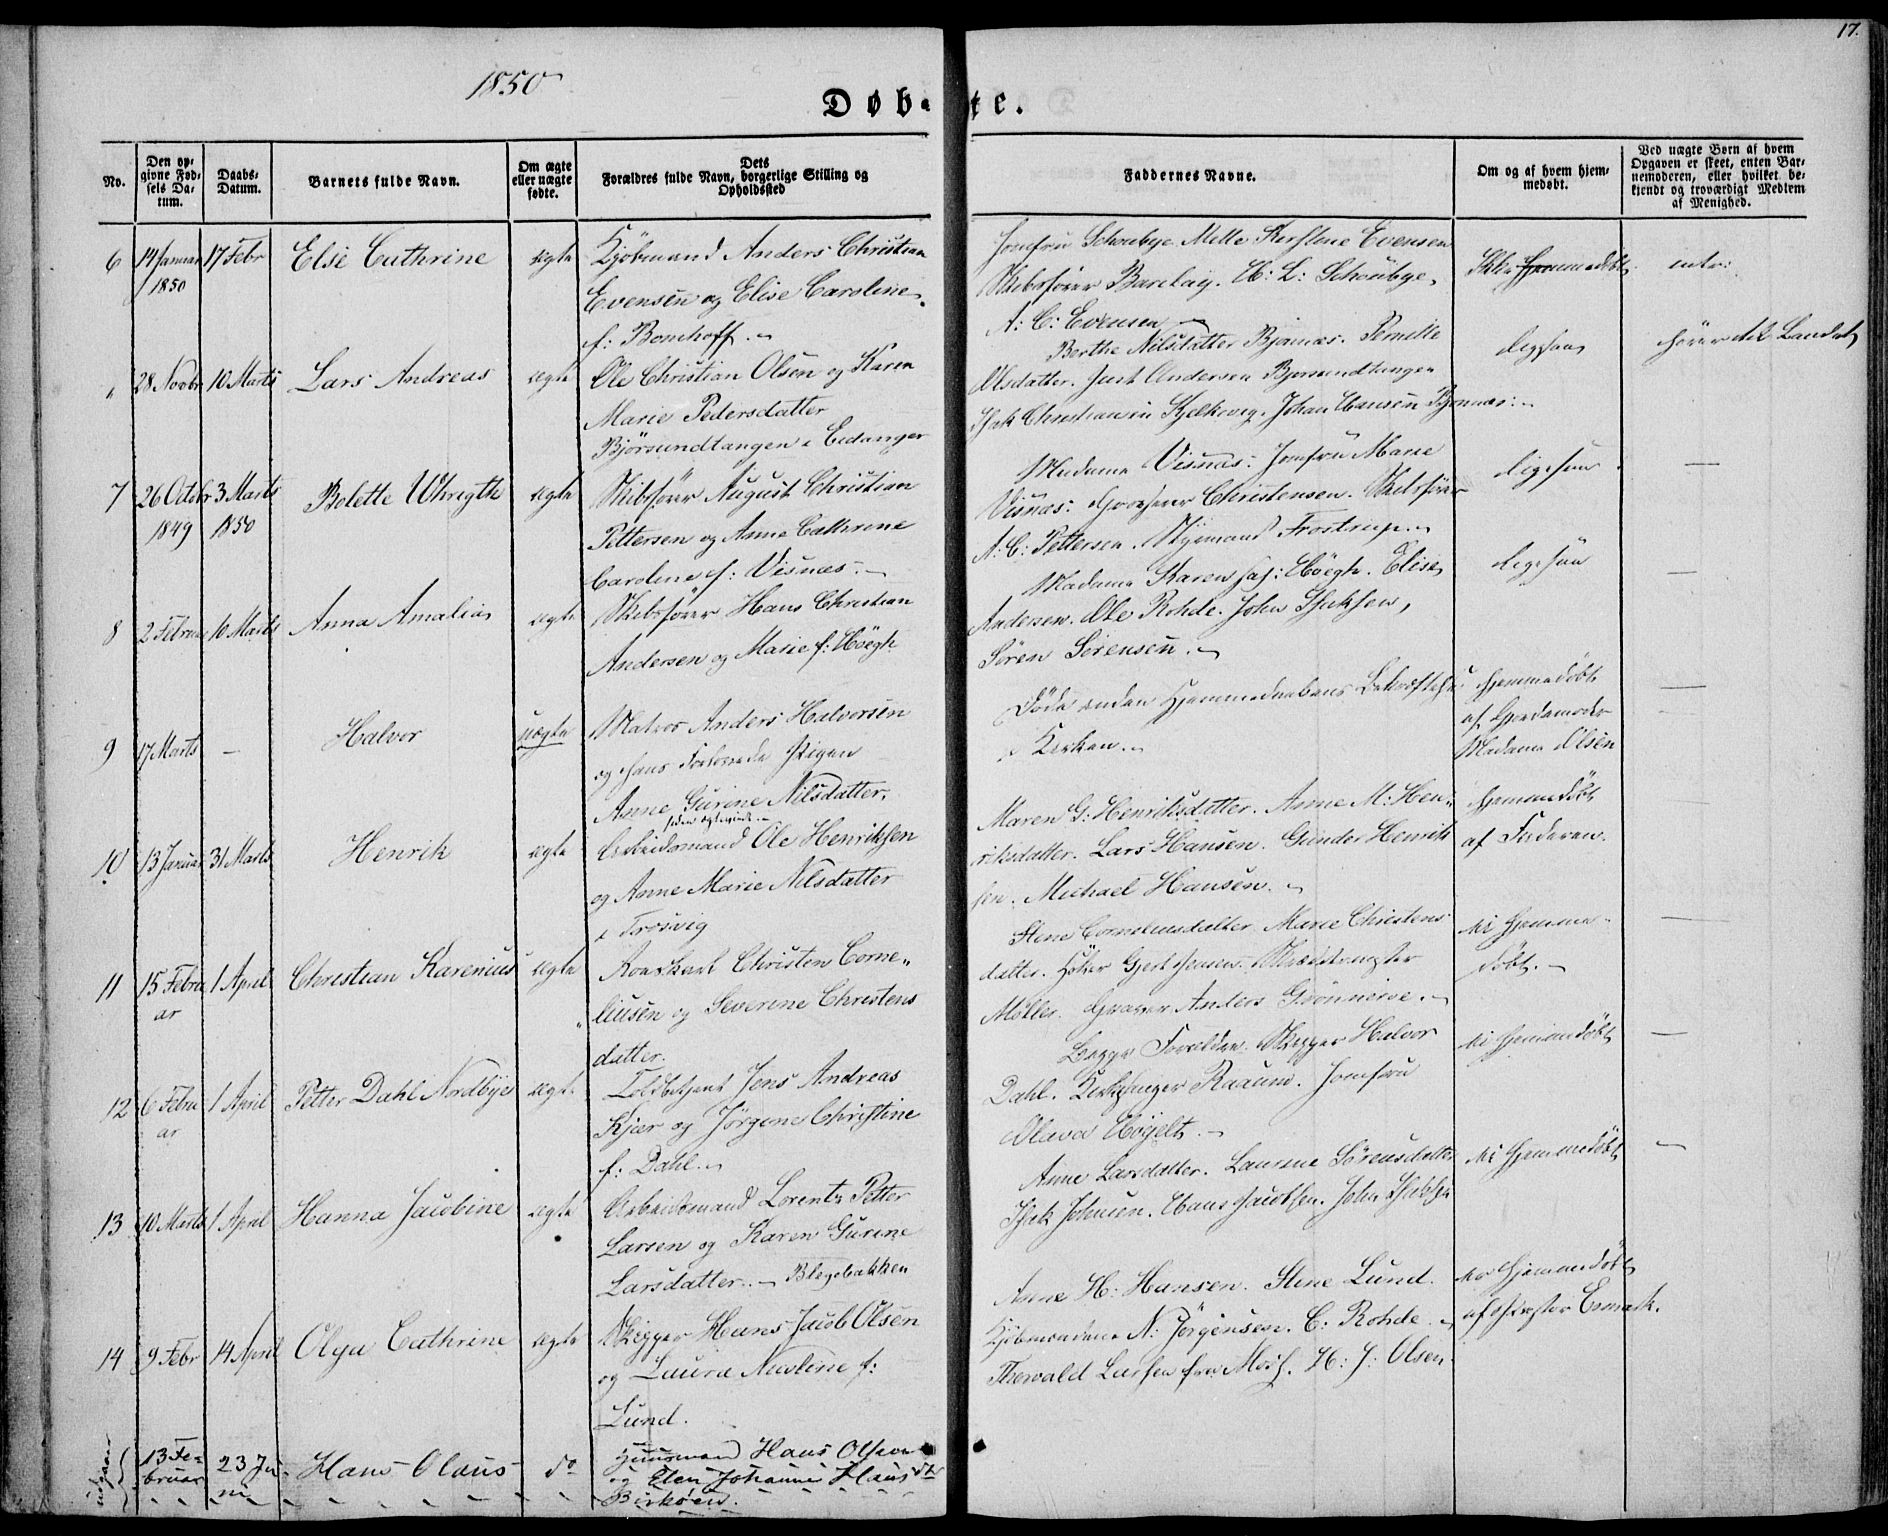 17.
1850
Døbte.
No.
Den opgivne Fødsels Datum.
Daabs-Datum.
Barnets fulde Navn.
Om ægte eller uægte fødte.
Dets Forældres fulde Navn, borgerlige Stilling og Opholdssted
Faddernes Navne.
Om og af hvem hjemmedøbt.
Ved uægte Børn af hvem Opgaven er skeet, enten Barnemoderen, eller hvilket bekjendt og troværdigt Medlem af Menighed.
6 14 Januar 1850 17 Febr Else Cathrine ægte
Kjöbmand Anders Christian
Evensen og Elise Caroline
f: Bomhoff.
Jomfru Schoubye. Mette Kirstene Evensen
Skibsfører Barclay. H: L: Schoubye,
A: C: Evensen
Ikke Hjemmedøbt
28 Novbr 10 Marts Lars Andreas ægte
Ole Christian Olsen og Karen
Marie Pedersdatter
Björsundtangen i Eidanger
Berthe Nilsdatter Bjønnæs. Pernille
Olsdatter. Just Andersen Bjørsundtangen
Isak Christiansen. Johan Hansen Bjønnæs.
ligesaa
hører til Landet
7 26 Octobr 1849 3 Marts 1850 Bolette Uhrigthe ægte
Skibsfører August Christian
Pettersen og Anne Cathrine
Caroline f: Visnæs.
Madame Visnæs. Jomfru Marie
Visnæs. Christensen. Skibsfører
A: C: Pettersen. Styrmand Frostrup.
ligesaa
8 2 Februar 10 Marts Anna Amalia ægte
Skibsfører Hans Christian
Andersen og Marie f: Höegh
Madame Karen Höegh. Elise
Andersen. Ole Rohde. John Isaksen,
Sören Sörensen.
ligesaa
9 17 Marts – Halvor uægte
Matros Anders Halvorsen
og hans Forlovede Pigen
Anne Gurine Nilsdatter,
siden ægteviede.
Døde inden Hjemmedaabens Bekræftelse
i Kirken.
Hjemmedøbt
af Gjordemoder
Madame Olsen
10 13 Januar 31 Marts Henrik ægte
Arbeidsmand Ole Henriksen
og Anne Marie Nilsdatter
i Trosvig
Maren G: Henriksdatter. Anne M: Hen-
riksdatter. Lars Hansen. Gunder Henrik
sen. Michael Hansen.
Hjemmedøbt
af Faderen.
11 15 Februar 1 April Christian Karenius ægte
Christen Corne-
liusen og Severine Christens
datter.
Stene Corneliusdatter. Marie Christens
datter. Høker Gjert Jensen.
Møller. Graver Anders Grønnerøe.
ei Hjemme-
døbt.
12 6 Februar 1 April Petter Dahl Nordbye ægte
Toldbetjent Jens Andreas
Kjær og Jørgene Christine
f: Dahl.
Begge Forældre. Skipper Halvor
Dahl. Kirkesanger Raaum. Jomfru
Olava
ei Hjemmedøbt
13 10 Marts 1 April Hanna Jacobine ægte
Arbeidsmand Lorentz Petter
Larsen og Karen Gurine
Larsdatter. – Blegebakken
Anne Larsdatter. Laurine Sörensdatter
Isak Johnsen. Hans Jacobsen. John Isaksen
ei Hjemmedøbt
14 9 Febr 14 April Olga Cathrine ægte
Skipper Hans Jacob Olsen
og Laura Nicoline f:
Lund.
Anne H: Hansen. Stene Lund.
Kjöbmændene N: Jørgensen. C. Rohde.
Thorvald Larsen fra Moss. H: J: Olsen.
Hjemmedøbt
af Provst Esmark.
udgaar
13 Februar 23 Juni Hans Olaus do
Huusmand Hans Olsen
og Elen Johanne Hansdtr
Birköen.